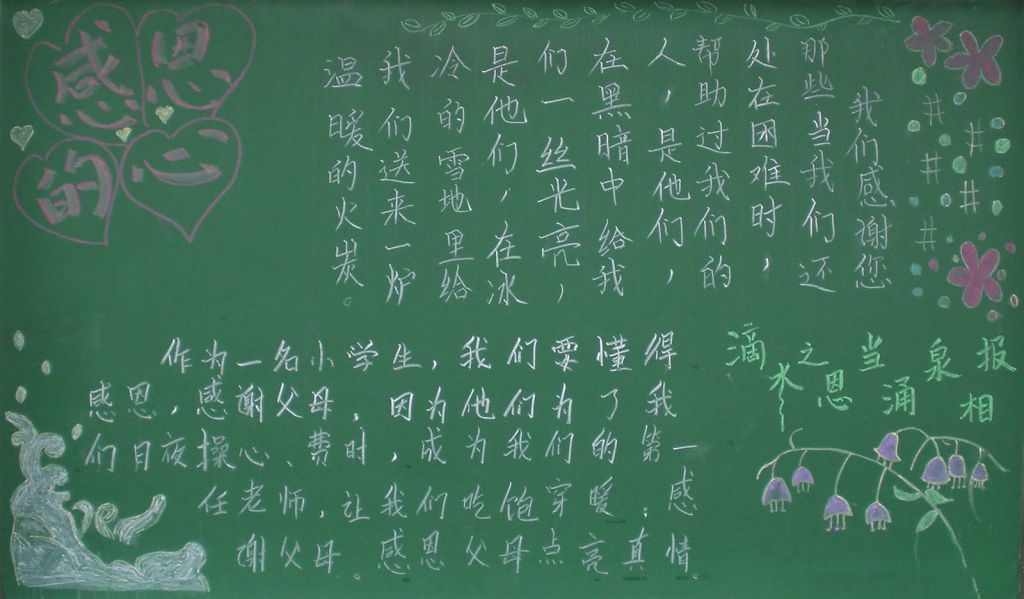 感恩
的心
我们感谢您
那些当我们还
处在困难时，
帮助过我们的
人，是他们，
在黑暗中给我
们一丝光亮，
是他们，在冰
冷的雪地里给
我们送来一炉
温暖的火炭。
滴水之恩当涌泉相报
作为一名小学生，我们要懂得
感恩，感谢父母，因为他们为了我
们日夜操心、费时，成为我们的第一
任老师，让我们吃饱穿暖；感
谢父母。感恩父母点亮真情